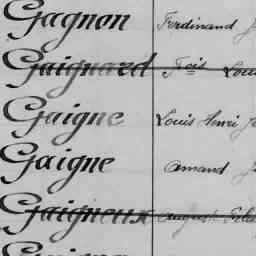 Gagnon Ferdinand J
Gaignard Fois Loui
Gaigne Louis Henri Jo
Gaigne Amand J
Gaigneux August